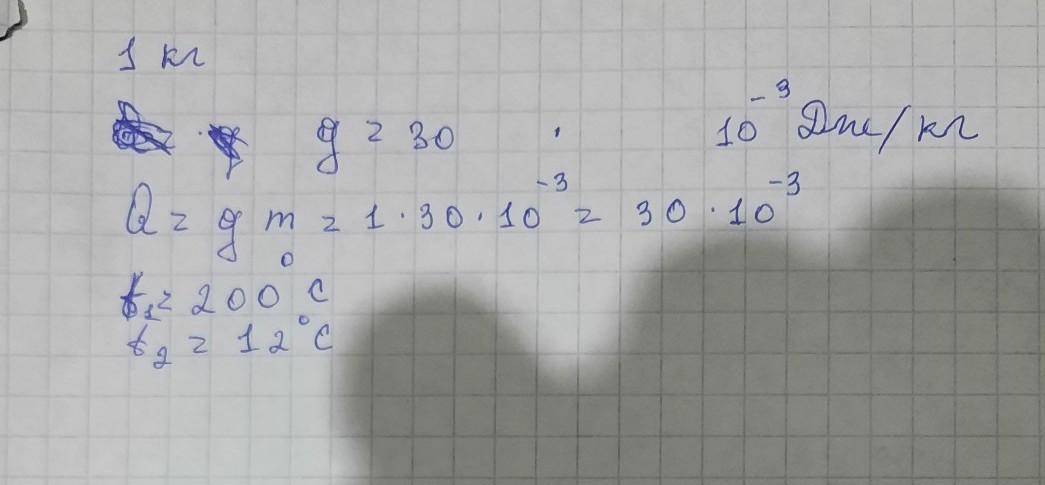 1 кг
g = 30 · 10⁻³ Дж/кг
Q = g m = 1 · 30 · 10⁻³ = 30 · 10⁻³
t₁ = 200°C
t₂ = 12°C